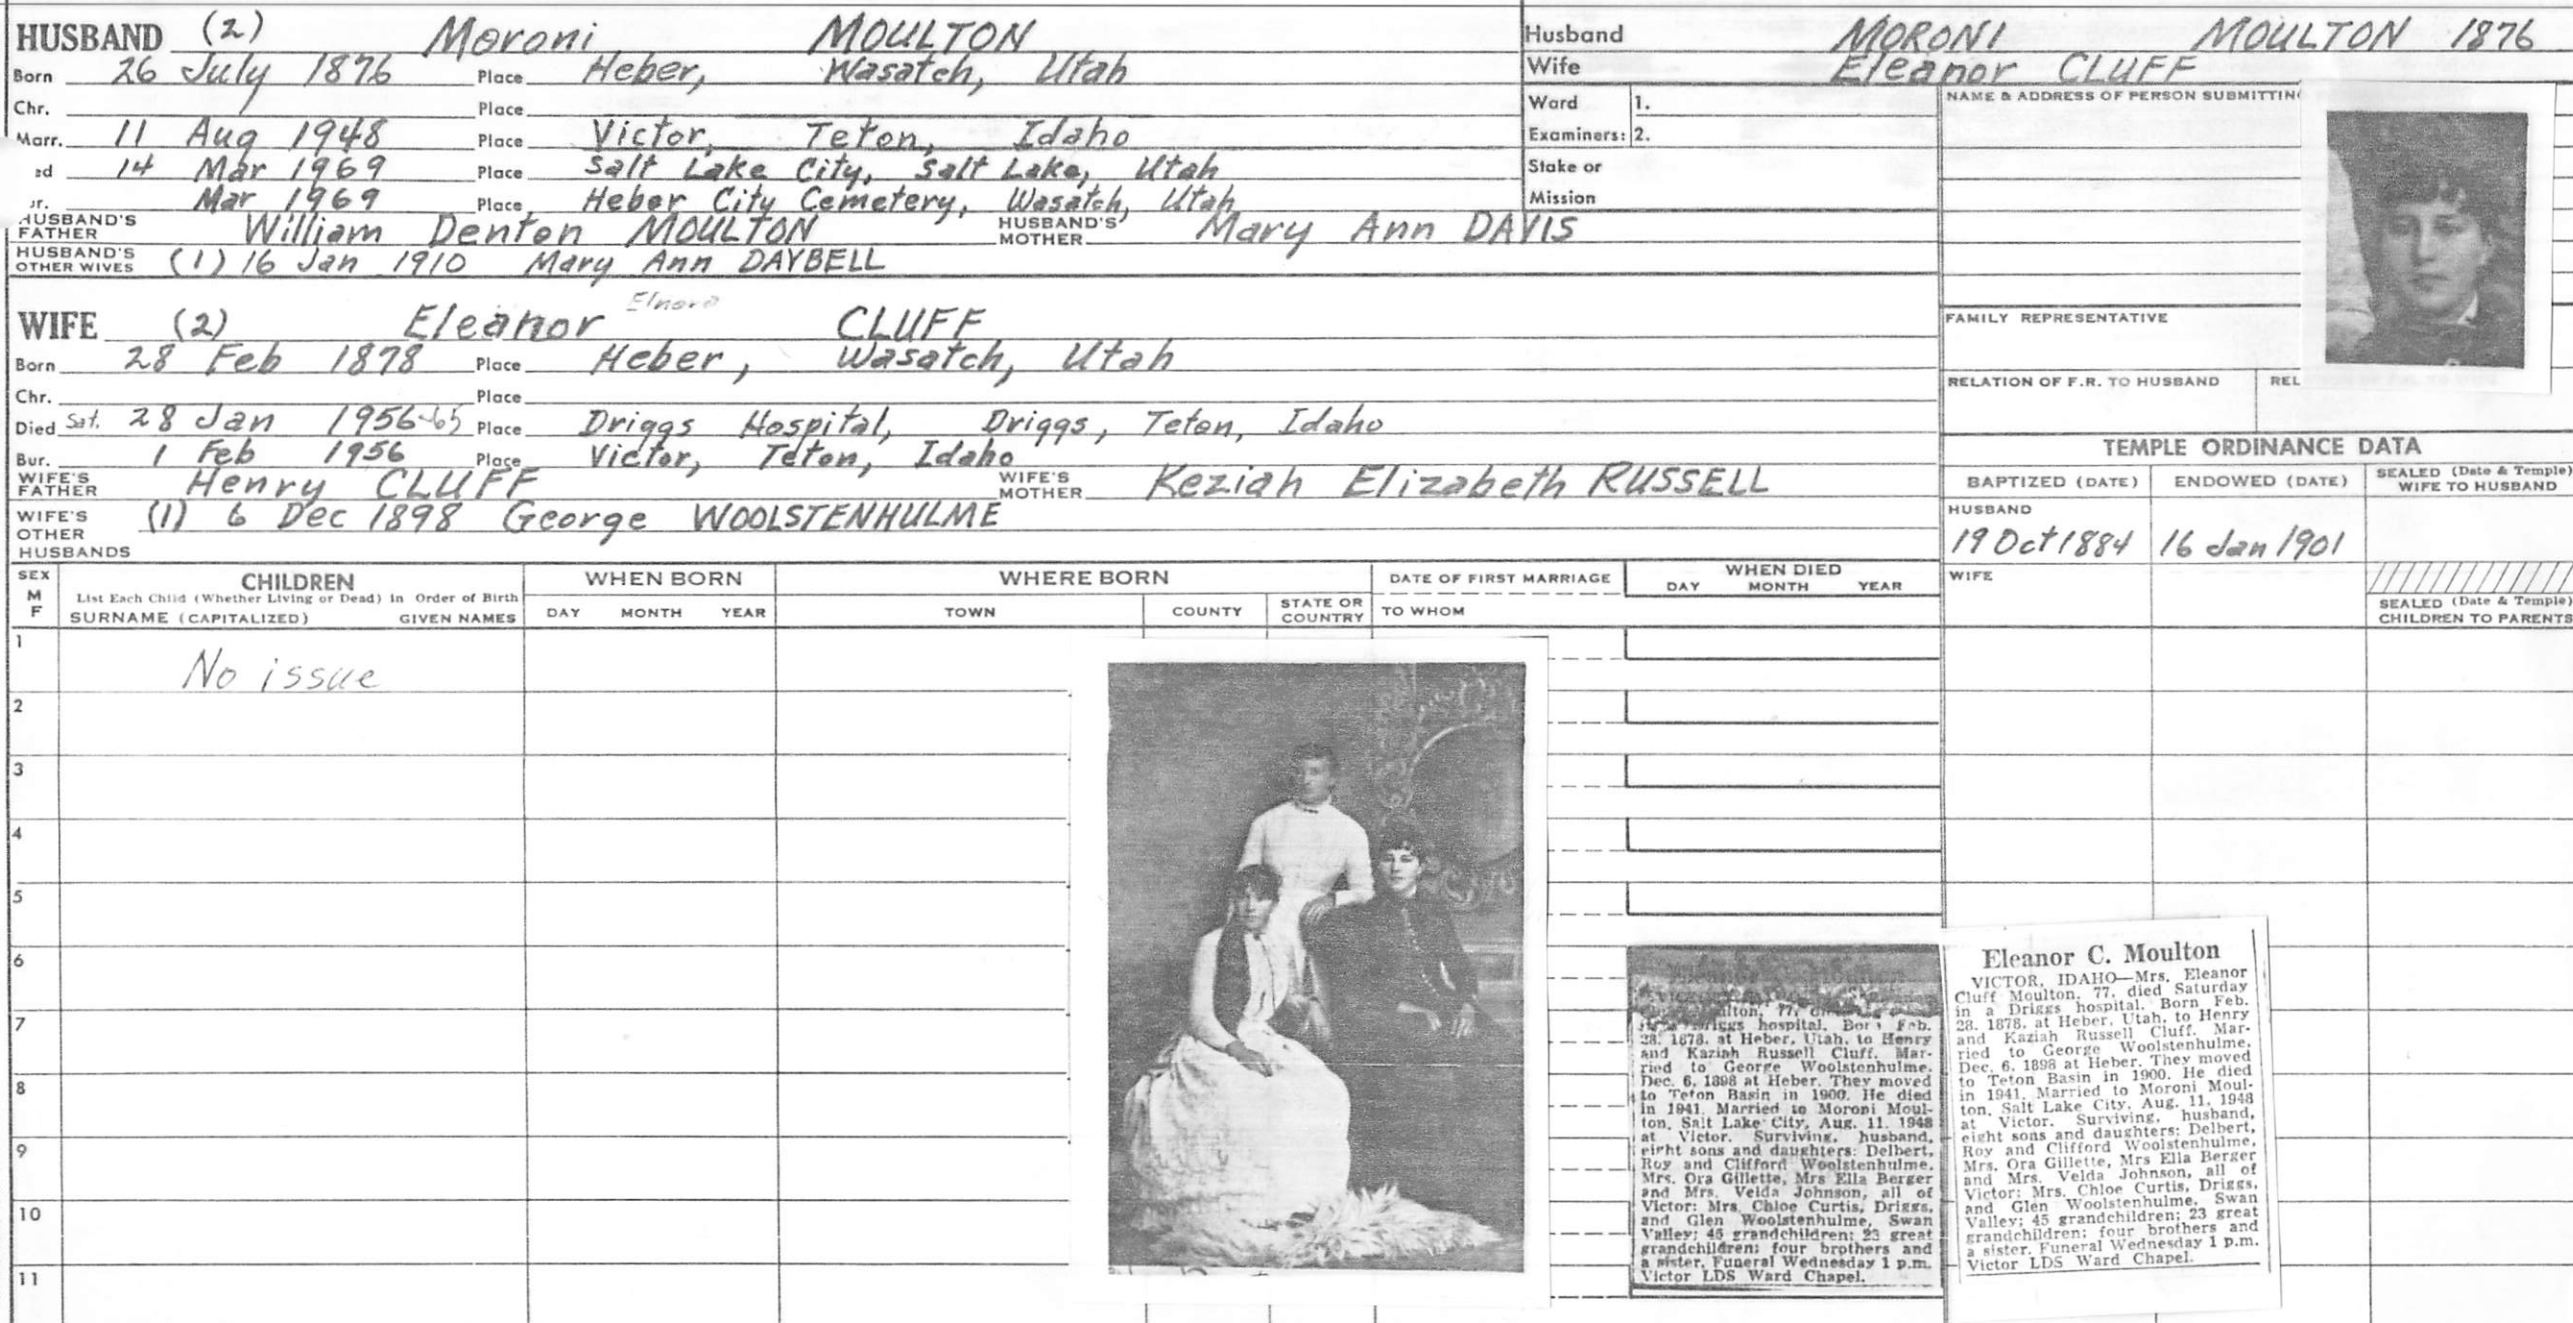 HUSBAND (2) Moroni MOULTON
Born 26 July 1876 Place Heber, Wasatch, Utah
Chr. Place
Marr. 11 Aug 1948 Place Victor, Teton, Idaho
ed 14 Mar 1969 Place Salt Lake City, Salt Lake, Utah
ur. Mar 1969 Place Heber City Cemetery, Wasatch, Utah
HUSBAND'S FATHER William Denton MOULTON HUSBAND'S MOTHER Mary Ann DAVIS
HUSBAND'S OTHER WIVES (1) 16 Jan 1910 Mary Ann DAYBELL
WIFE (2) Eleanor Elnora CLUFF
Born 28 Feb 1878 Place Heber, Wasatch, Utah
Chr. Place
Died Sat. 28 Jan 1956 Place Driggs Hospital, Driggs, Teton, Idaho
Bur. 1 Feb 1956 Place Victor, Teton, Idaho
WIFE'S FATHER Henry CLUFF WIFE'S MOTHER Keziah Elizabeth RUSSELL
WIFE'S OTHER HUSBANDS (1) 6 Dec 1898 George WOOLSTENHULME
Husband MORONI MOULTON 1876
Wife Eleanor CLUFF
Ward 1.
Examiners: 2.
Stake or
Mission
NAME & ADDRESS OF PERSON SUBMITTING
FAMILY REPRESENTATIVE
RELATION OF F.R. TO HUSBAND REL
TEMPLE ORDINANCE DATA
BAPTIZED (DATE) ENDOWED (DATE) SEALED (Date & Temple) WIFE TO HUSBAND
HUSBAND
19 Oct 1884 16 Jan 1901
WIFE
SEALED (Date & Temple)
CHILDREN TO PARENTS
SEX M F
CHILDREN
List Each Child (Whether Living or Dead) in Order of Birth
SURNAME (CAPITALIZED) GIVEN NAMES
WHEN BORN
DAY MONTH YEAR
WHERE BORN
TOWN COUNTY STATE OR COUNTRY
DATE OF FIRST MARRIAGE
TO WHOM
WHEN DIED
DAY MONTH YEAR
1 No issue
2
3
4
5
6
7
8
9
10
11
ulton, 77,
hospital. Born Feb.
28, 1878, at Heber, Utah, to Henry
and Kaziah Russell Cluff. Mar-
ried to George Woolstenhulme,
Dec. 6, 1898 at Heber. They moved
to Teton Basin in 1900. He died
in 1941. Married to Moroni Moul-
ton, Salt Lake City, Aug. 11, 1948
at Victor. Surviving, husband,
eight sons and daughters: Delbert,
Roy and Clifford Woolstenhulme,
Mrs. Ora Gillette, Mrs Ella Berger
and Mrs. Velda Johnson, all of
Victor: Mrs. Chloe Curtis, Driggs,
and Glen Woolstenhulme, Swan
Valley; 45 grandchildren; 23 great
grandchildren; four brothers and
a sister. Funeral Wednesday 1 p.m.
Victor LDS Ward Chapel.
Eleanor C. Moulton
VICTOR, IDAHO—Mrs. Eleanor
Cluff Moulton, 77, died Saturday
in a Driggs hospital. Born Feb.
28, 1878, at Heber, Utah, to Henry
and Kaziah Russell Cluff. Mar-
ried to George Woolstenhulme,
Dec. 6, 1898 at Heber. They moved
to Teton Basin in 1900. He died
in 1941. Married to Moroni Moul-
ton, Salt Lake City, Aug. 11, 1948
at Victor. Surviving, husband,
eight sons and daughters: Delbert,
Roy and Clifford Woolstenhulme,
Mrs. Ora Gillette, Mrs Ella Berger
and Mrs. Velda Johnson, all of
Victor; Mrs. Chloe Curtis, Driggs,
and Glen Woolstenhulme, Swan
Valley; 45 grandchildren; 23 great
grandchildren; four brothers and
a sister. Funeral Wednesday 1 p.m.
Victor LDS Ward Chapel.